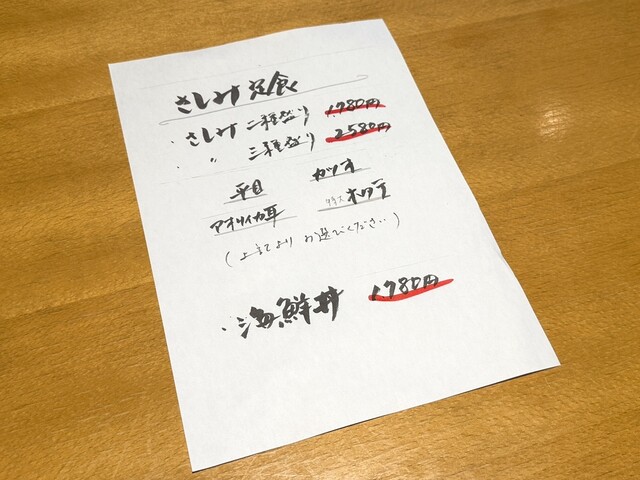 さしみ定食
・さしみ 二種盛り 1780円
・ 〃 三種盛り 2580円
平目 カツオ
アオリイカ耳 ホタテ
(上記よりお選びください)
・海鮮丼 1780円